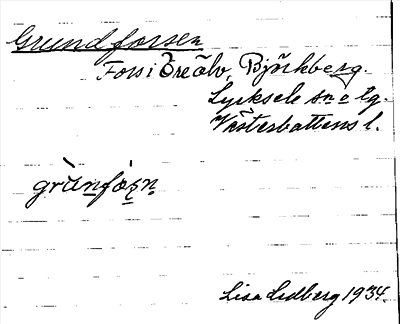 Grundforsen
Fors i Öreälv, Björkberg.
Lycksele sn o tg.
Västerbottens l.
grùnfɔṣṇ
Lisa Lidberg 1934.